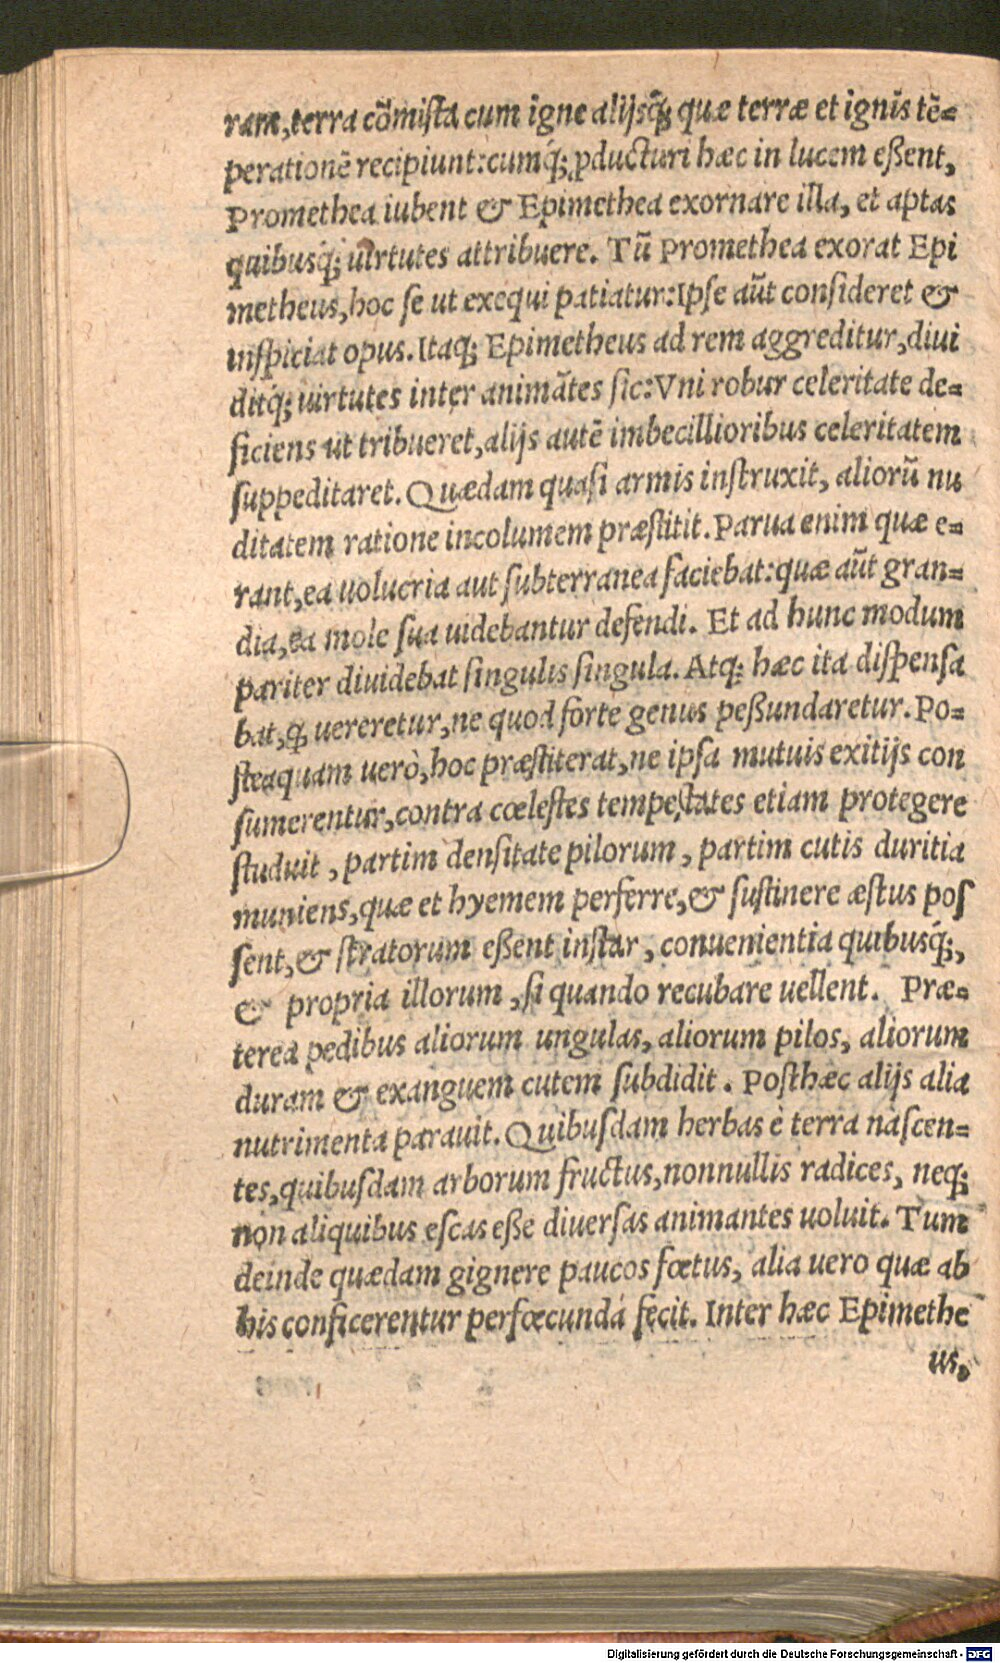 ram, terra cõmista cum igne alijsq́; quæ terræ et ignis tẽ=
perationẽ recipiunt: cumq́; ꝓducturi hæc in lucem eßent,
Promethea iubent & Epimethea exornare illa, et aptas
quibusq́; uirtutes attribuere. Tũ Promethea exorat Epi
metheus, hoc se ut exequi patiatur: Ipse aũt consideret &
inspiciat opus. Itaq; Epimetheus ad rem aggreditur, diui
ditq́; uirtutes inter animãtes sic: Vni robur celeritate de=
ficiens ut tribueret, alijs autẽ imbecillioribus celeritatem
suppeditaret. Quædam quasi armis instruxit, aliorũ nu
ditatem ratione incolumem præstitit. Parua enim quæ e=
rant, ea uolucria aut subterranea faciebat: quæ aũt gran=
dia, ea mole sua uidebantur defendi. Et ad hunc modum
pariter diuidebat singulis singula. Atq; hæc ita dispensa
bat, ꝙ uereretur, ne quod forte genus peßundaretur. Po=
steaquam uerò, hoc præstiterat, ne ipsa mutuis exitijs con
sumerentur, contra cœlestes tempestates etiam protegere
studuit, partim densitate pilorum, partim cutis duritia
muniens, quæ et hyemem perferre, & sustinere æstus pos
sent, & stratorum eßent instar, conuenientia quibusq́;,
& propria illorum, si quando recubare uellent. Præ=
terea pedibus aliorum ungulas, aliorum pilos, aliorum
duram & exanguem cutem subdidit. Posthæc alijs alia
nutrimenta parauit. Quibusdam herbas è terra nascen=
tes, quibusdam arborum fructus, nonnullis radices, neq;
non aliquibus escas eße diuersas animantes uoluit. Tum
deinde quædam gignere paucos fœtus, alia uero quæ ab
his conficerentur perfœcunda fecit. Inter hæc Epimethe
us,
Digitalisierung gefördert durch die Deutsche Forschungsgemeinschaft - DFG